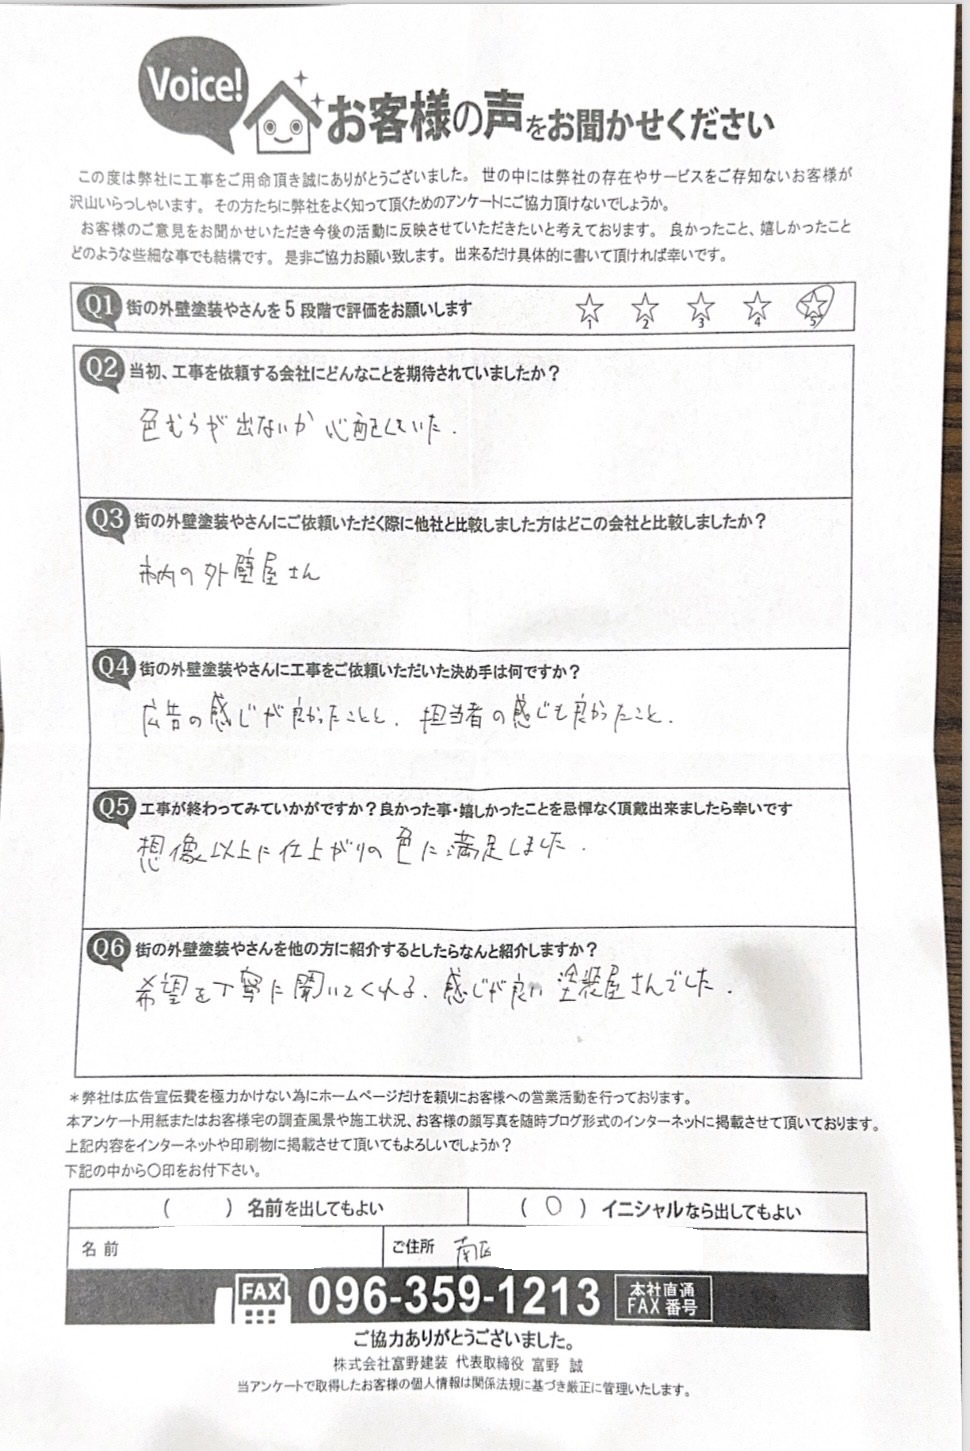 Voice!
お客様の声をお聞かせください
この度は弊社に工事をご用命頂き誠にありがとうございました。世の中には弊社の存在やサービスをご存知ないお客様が
沢山いらっしゃいます。その方たちに弊社をよく知って頂くためのアンケートにご協力頂けないでしょうか。
お客様のご意見をお聞かせいただき今後の活動に反映させていただきたいと考えております。良かったこと、嬉しかったこと
どのような些細な事でも結構です。是非ご協力お願い致します。出来るだけ具体的に書いて頂ければ幸いです。
Q1 街の外壁塗装やさんを5段階で評価をお願いします ☆1 ☆2 ☆3 ☆4 ☆5
Q2 当初、工事を依頼する会社にどんなことを期待されていましたか？
色むらが出ないか心配していた.
Q3 街の外壁塗装やさんにご依頼いただく際に他社と比較しました方はどこの会社と比較しましたか？
市内の外壁屋さん
Q4 街の外壁塗装やさんに工事をご依頼いただいた決め手は何ですか？
広告の感じが良かったことと、担当者の感じも良かったこと.
Q5 工事が終わってみていかがですか？良かった事・嬉しかったことを忌憚なく頂戴出来ましたら幸いです
想像以上に仕上がりの色に満足しました.
Q6 街の外壁塗装やさんを他の方に紹介するとしたらなんと紹介しますか？
希望を丁寧に聞いてくれる、感じが良い塗装屋さんでした.
＊弊社は広告宣伝費を極力かけない為にホームページだけを頼りにお客様への営業活動を行っております。
本アンケート用紙またはお客様宅の調査風景や施工状況、お客様の顔写真を随時ブログ形式のインターネットに掲載させて頂いております。
上記内容をインターネットや印刷物に掲載させて頂いてもよろしいでしょうか？
下記の中から〇印をお付下さい。
（　　）名前を出してもよい （ 〇 ）イニシャルなら出してもよい
名前 ご住所 南区
FAX 096-359-1213 本社直通
FAX番号
ご協力ありがとうございました。
株式会社富野建装 代表取締役 富野 誠
当アンケートで取得したお客様の個人情報は関係法規に基づき厳正に管理いたします。